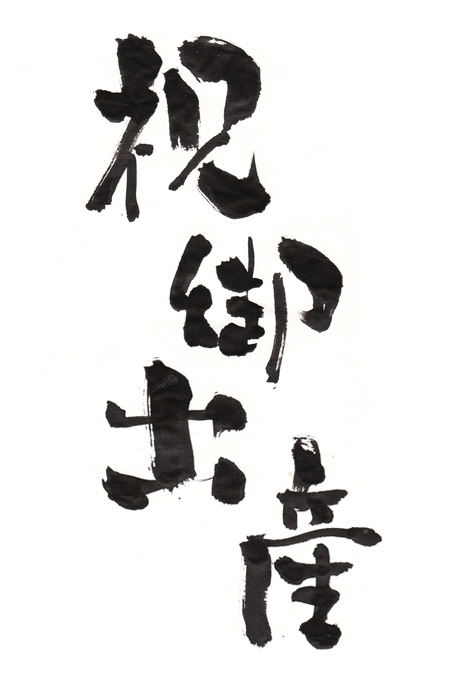 祝御出産